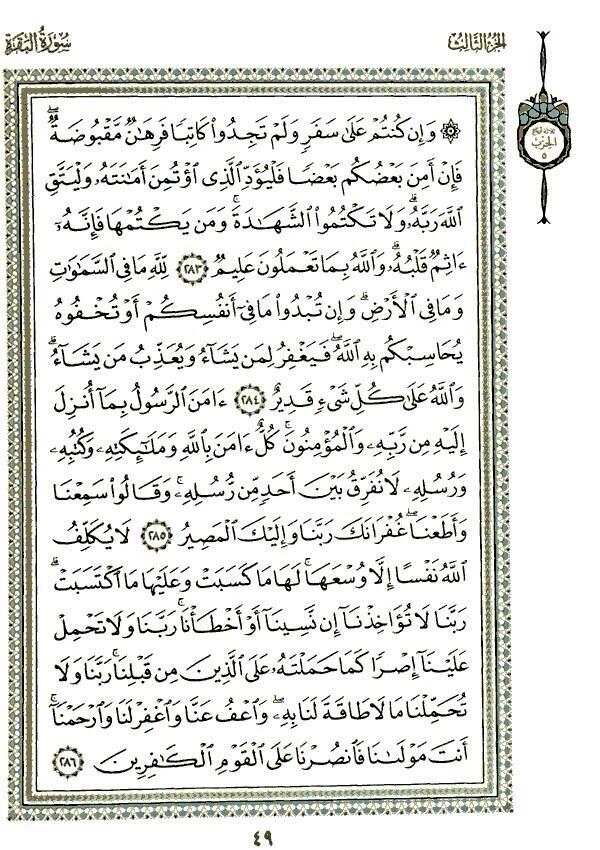 سُورَةُ البَقَرَةِ
الجُزْءُ الثَّالِثُ
ثلاثة أرباع
الحزب
٥
۞ وَإِن كُنتُمْ عَلَىٰ سَفَرٍ وَلَمْ تَجِدُوا۟ كَاتِبًا فَرِهَٰنٌ مَّقْبُوضَةٌ ۖ
فَإِنْ أَمِنَ بَعْضُكُم بَعْضًا فَلْيُؤَدِّ ٱلَّذِى ٱؤْتُمِنَ أَمَٰنَتَهُۥ وَلْيَتَّقِ
ٱللَّهَ رَبَّهُۥ ۗ وَلَا تَكْتُمُوا۟ ٱلشَّهَٰدَةَ ۚ وَمَن يَكْتُمْهَا فَإِنَّهُۥٓ
ءَاثِمٌ قَلْبُهُۥ ۗ وَٱللَّهُ بِمَا تَعْمَلُونَ عَلِيمٌ ٢٨٣ لِّلَّهِ مَا فِى ٱلسَّمَٰوَٰتِ
وَمَا فِى ٱلْأَرْضِ ۗ وَإِن تُبْدُوا۟ مَا فِىٓ أَنفُسِكُمْ أَوْ تُخْفُوهُ
يُحَاسِبْكُم بِهِ ٱللَّهُ ۖ فَيَغْفِرُ لِمَن يَشَآءُ وَيُعَذِّبُ مَن يَشَآءُ ۗ
وَٱللَّهُ عَلَىٰ كُلِّ شَىْءٍ قَدِيرٌ ٢٨٤ ءَامَنَ ٱلرَّسُولُ بِمَآ أُنزِلَ
إِلَيْهِ مِن رَّبِّهِۦ وَٱلْمُؤْمِنُونَ ۚ كُلٌّ ءَامَنَ بِٱللَّهِ وَمَلَٰٓئِكَتِهِۦ وَكُتُبِهِۦ
وَرُسُلِهِۦ لَا نُفَرِّقُ بَيْنَ أَحَدٍ مِّن رُّسُلِهِۦ ۚ وَقَالُوا۟ سَمِعْنَا
وَأَطَعْنَا ۖ غُفْرَانَكَ رَبَّنَا وَإِلَيْكَ ٱلْمَصِيرُ ٢٨٥ لَا يُكَلِّفُ
ٱللَّهُ نَفْسًا إِلَّا وُسْعَهَا ۚ لَهَا مَا كَسَبَتْ وَعَلَيْهَا مَا ٱكْتَسَبَتْ ۗ
رَبَّنَا لَا تُؤَاخِذْنَآ إِن نَّسِينَآ أَوْ أَخْطَأْنَا ۚ رَبَّنَا وَلَا تَحْمِلْ
عَلَيْنَآ إِصْرًا كَمَا حَمَلْتَهُۥ عَلَى ٱلَّذِينَ مِن قَبْلِنَا ۚ رَبَّنَا وَلَا
تُحَمِّلْنَا مَا لَا طَاقَةَ لَنَا بِهِۦ ۖ وَٱعْفُ عَنَّا وَٱغْفِرْ لَنَا وَٱرْحَمْنَآ ۚ
أَنتَ مَوْلَىٰنَا فَٱنصُرْنَا عَلَى ٱلْقَوْمِ ٱلْكَٰفِرِينَ ٢٨٦
٤٩